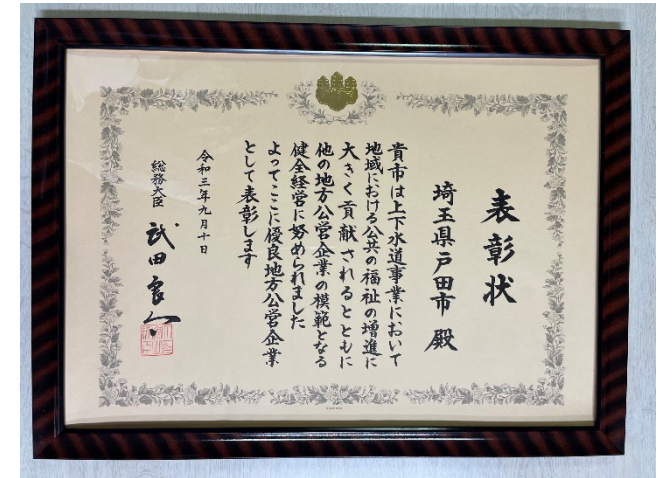 表彰状
埼玉県戸田市 殿
貴市は上下水道事業において
地域における公共の福祉の増進に
大きく貢献されるとともに
他の地方公営企業の模範となる
健全経営に努められました
よってここに優良地方公営企業
として表彰します
令和三年九月十日
総務大臣 武田良太